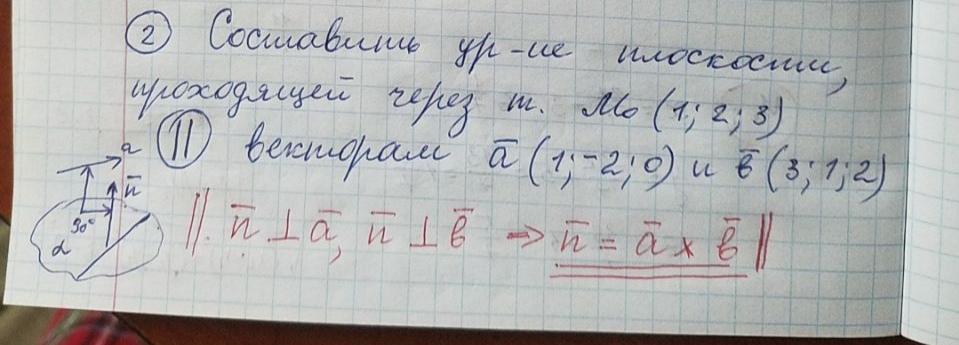 ② Составить ур-ие плоскости,
проходящей через т. M₀ (1; 2; 3)
|| векторам a̅ (1; -2; 0) и b̅ (3; 1; 2)
a
n̅
90°
α
|| n̅ ⊥ a̅, n̅ ⊥ b̅ ⇒ n̅ = a̅ × b̅ ||